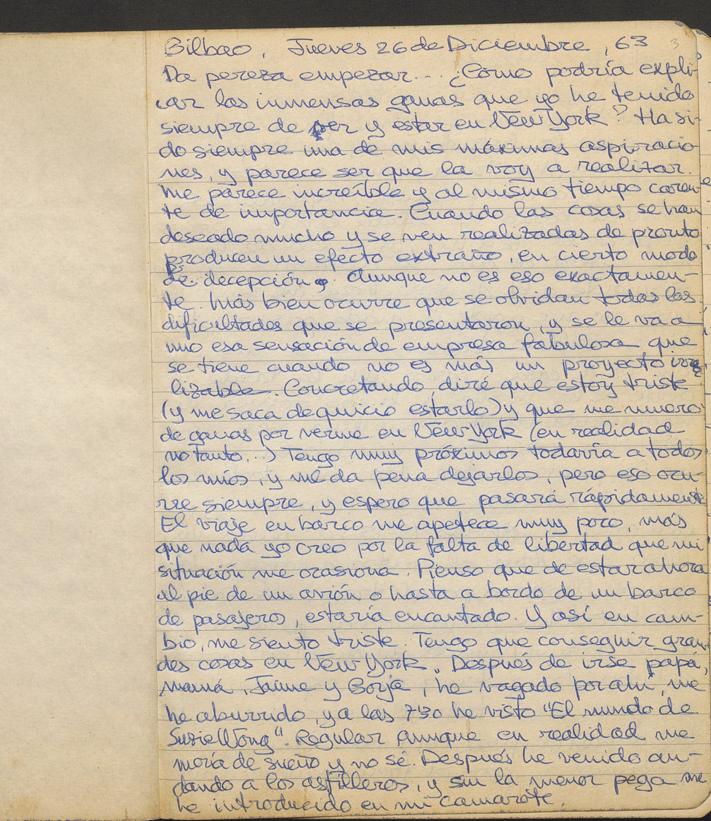 Bilbao, Jueves 26 de Diciembre, 63 3
Da pereza empezar... ¿Cómo podría expli-
car las inmensas ganas que yo he tenido
siempre de ser y estar en New York? Ha si-
do siempre una de mis máximas aspiracio
nes, y parece ser que la voy a realizar.
Me parece increíble y al mismo tiempo caren-
te de importancia. Cuando las cosas se han
deseado mucho y se ven realizadas de pronto
producen un efecto extraño, en cierto modo
de decepción. Aunque no es eso exactamen-
te. Más bien ocurre que se olvidan todas las
dificultades que se presentaron, y se le va a
uno esa sensación de empresa fabulosa que
se tiene cuando no es más un proyecto irrea
lizable. Concretando diré que estoy triste
(y me saca de quicio estarlo) y que me muero
de ganas por verme en New York (en realidad
no tanto...) Tengo muy próximos todavía a todos
los míos, y me da pena dejarlos, pero eso ocu-
rre siempre, y espero que pasará rápidamente
El viaje en barco me apetece muy poco, más
que nada yo creo por la falta de libertad que mi
situación me ocasiona. Pienso que de estar ahora
al pie de un avión o hasta a bordo de un barco
de pasajeros, estaría encantado. Y así en cam-
bio, me siento triste. Tengo que conseguir gran-
des cosas en New York. Después de irse papá,
mamá, Jaime y Borja, he vagado por ahí, me
he aburrido, y a las 7'30 he visto "El mundo de
Suzie Wong". Regular aunque en realidad me
moría de sueño y no sé. Después he venido an-
dando a los astilleros, y sin la menor pega me
he introducido en mi camarote.